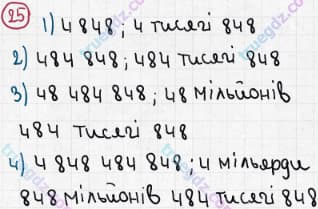 25 1) 4 848; 4 тисячі 848
2) 484 848; 484 тисячі 848
3) 48 484 848; 48 мільйонів
484 тисячі 848
4) 4 848 484 848; 4 мільярди
848 мільйонів 484 тисячі 848